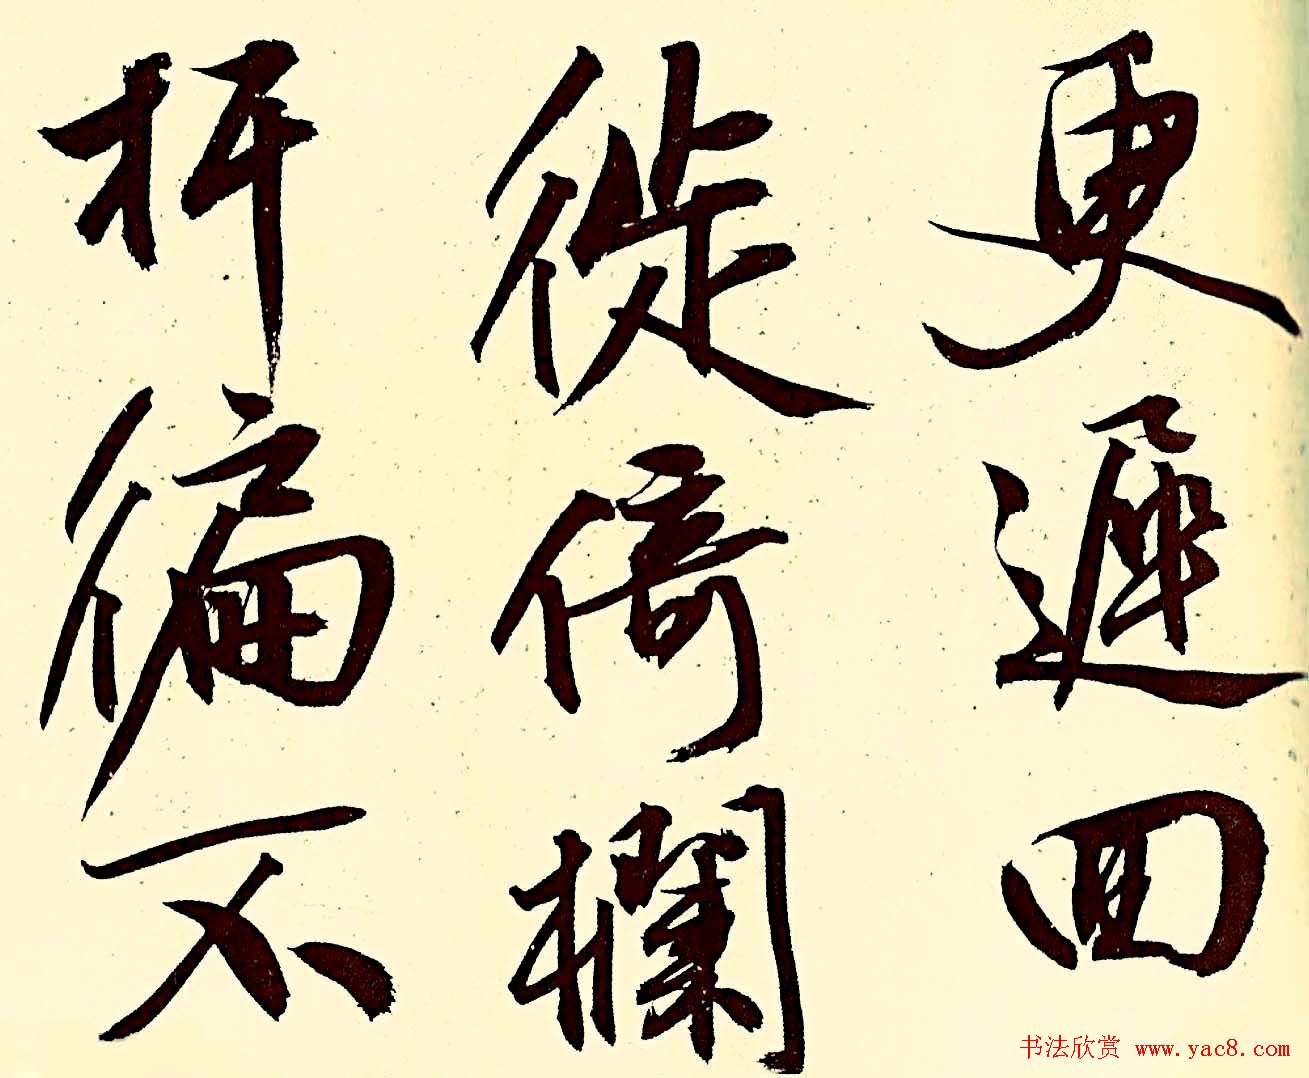 更遞四
徙倚欄
杆徧不
书法欣赏 www.yac8.com